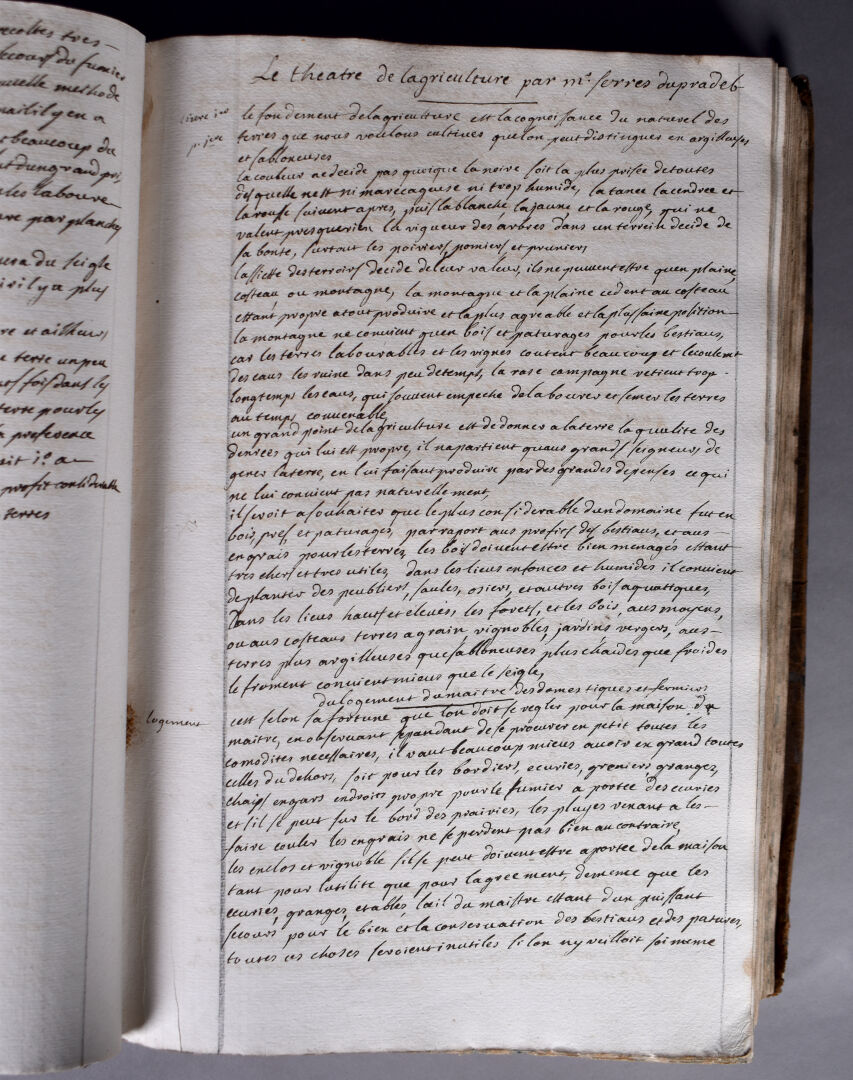 ecoltes tres-
secours du fumier
nouvelle methode
mais il y en a
beaucoup du
dun grand prix
les laboure
par planches
du seigle
il y a plus
re et ailheurs
terre un peu
fois dans les
terre pour les
preference
soit jo a
profit considerable
terres
Le theatre de lagriculture par mr. serres dupradel
livre 1er
le fondement delagriculture est la cognoissance du naturel des
terres que nous voulons cultiver quelon peut distinguer en argilleuses
et sabloneuses
la couleur ne decide pas quoique la noire soit la plus prisée de toutes
desquelle nest ni marecageuse ni trop humide, la tanée la cendrée et
la rousse suivent apres, puis la blanche, la jaune et la rouge, qui ne
valent presque rien la vigueur des arbres dans un terrein decide de
sa bonté, surtout les poiriers, pomiers, et pruniers,
lassiete des terroirs decide de leur valeur, ils ne peuvent estre quen plaine,
costeau, ou montagne, la montagne et la plaine cedent au costeau
estant propre a tout produire et la plus agreable et la plus saine position
la montagne ne convient quen bois et paturages pour les bestiaus,
car les terres labourables et les vignes coutent beaucoup et lecoulement
des eaus les ruine dans peu de temps, la rase campagne retient trop
longtemps les eaus, qui souvent empeche de labourer et semer les terres
au temps convenable,
un grand point de lagriculture est de donner a la terre la qualité des
denrées qui lui est propre, il napartient quaus grands seigneurs de
gener la terre, en lui faisant produire par des grandes depenses ce qui
ne lui convient pas naturellement,
il seroit a souhaiter que le plus considerable dun domaine fut en
bois, pres, et paturages, par raport aus profits des bestiaus, et aus
engrais pour les terres, les bois doivent estre bien menagés estant
tres chers et tres utiles, dans les lieus enfoncés et humides il convient
de planter des peupliers, saules, osiers, et autres bois aquatiques,
dans les lieus hauts et elevés, les forets, et les bois, aus moyens,
ou aus costeaus terres a grain, vignobles, jardins vergers, aus
terres plus argilleuses que sabloneuses plus chaudes que froides
le froment convient mieus que le seigle,
du logement du maitre des domestiques et fermiers
logement
cest selon sa fortune que lon doit se regler pour la maison du
maitre, en observant cependant de se procurer en petit toutes les
comodités necessaires, il vaut beaucoup mieus avoir en grand toutes
celles du dehors, soit pour les bordiers, ecuries, greniers granges,
chais, engars endroits propre pour le fumier a portée des ecuries
et sil se peut sur le bord des prairies, les pluyes venant a les
faire couler les engrais ne se perdent pas bien au contraire,
les enclos et vignoble sil se peut doivent estre a portée de la maison
tant pour lutilité que pour lagreement, de meme que les
ecuries, granges, etables, lœil du maistre estant dun puissant
secours pour le bien et la conservation des bestiaus et des patures,
toutes ces choses seroient inutiles si lon ny veilloit soi meme